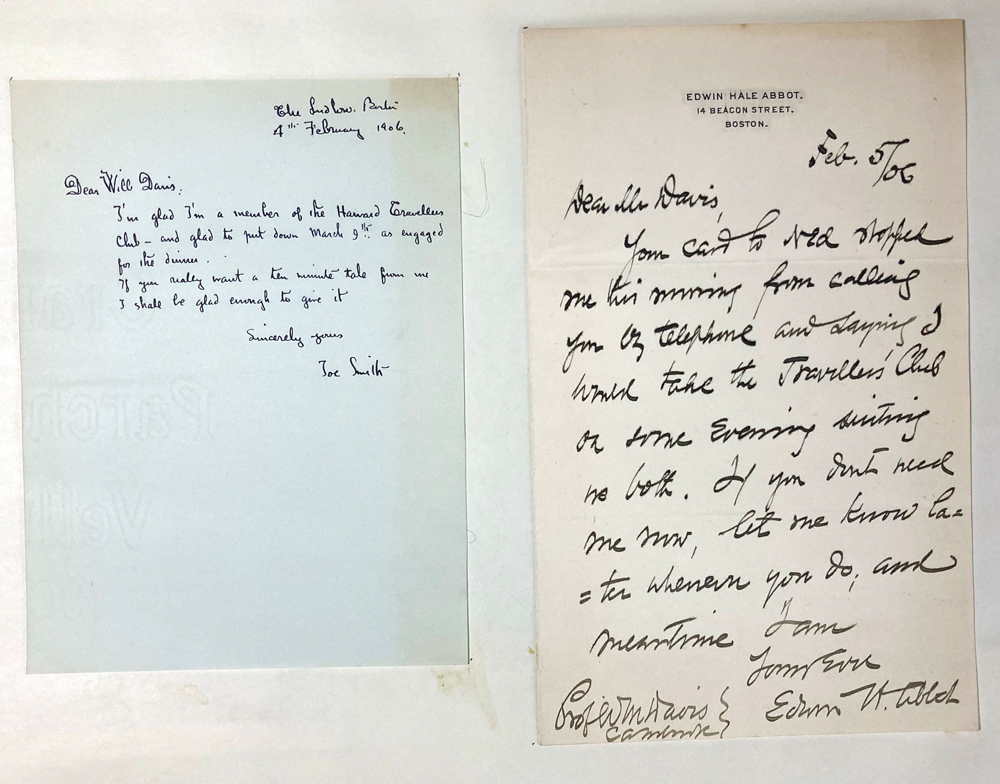 The Ludlow. Boston
4th February 1906.
Dear Will Davis.
I'm glad I'm a member of the Harvard Travellers
Club – and glad to put down March 9th as engaged
for the dinner.
If you really want a ten minute talk from me
I shall be glad enough to give it
Sincerely yours
Joe Smith
EDWIN HALE ABBOT.
14 BEACON STREET,
BOSTON.
Feb. 5/06
Dear Mr Davis,
Your card to Ned stopped
me this morning from calling
you by telephone and saying I
would take the Travellers' Club
on some evening suiting
us both. If you don't need
me now, let me know la=
=ter whenever you do; and
meantime I am
Yours Ever
Edwin H. Abbot
Prof W M Davis }
Cambridge